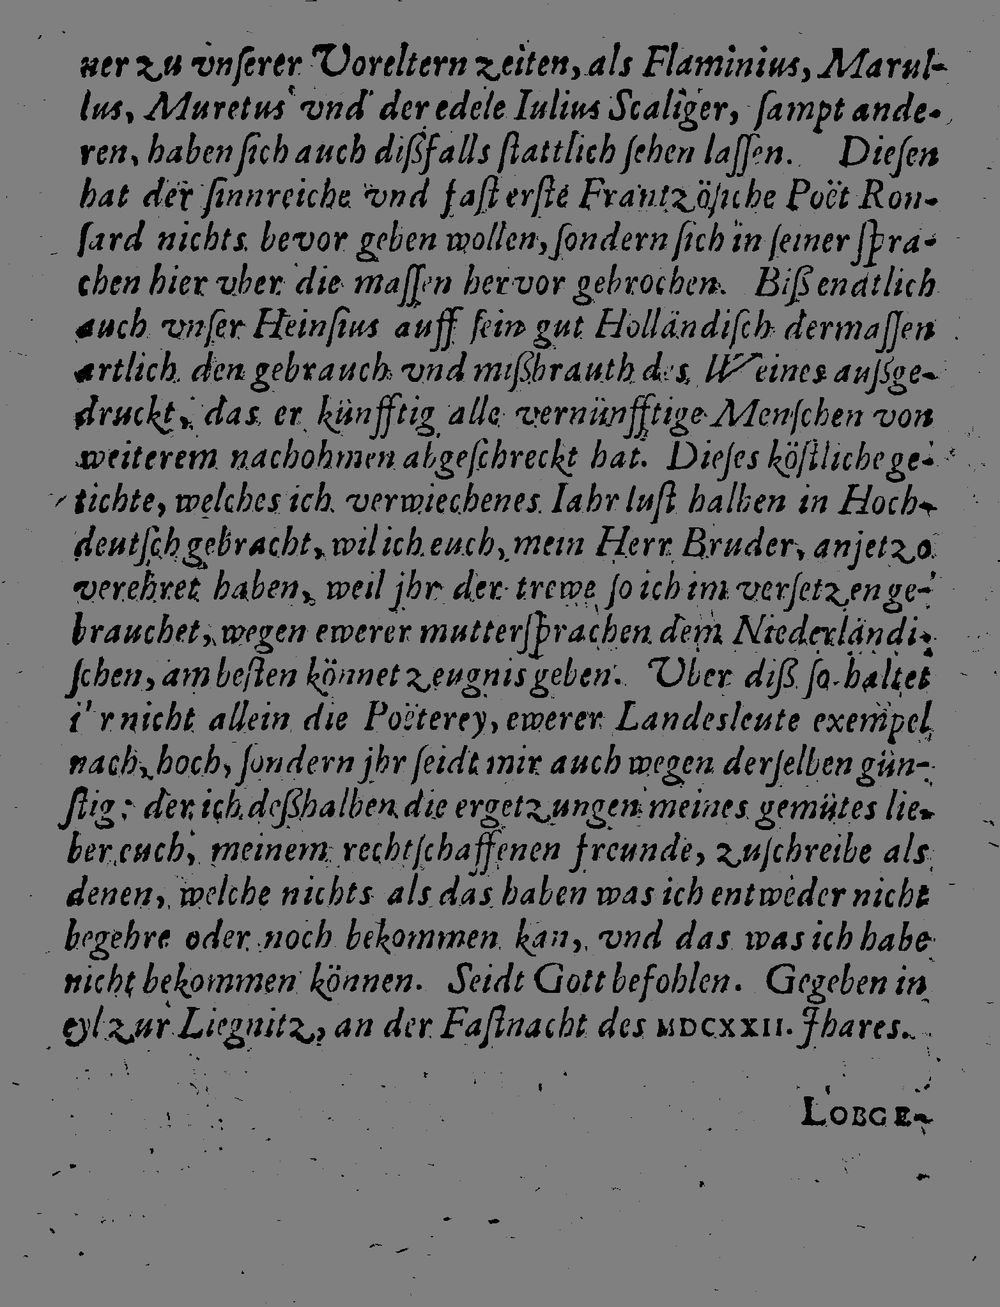 ner zu vnſerer Voreltern zeiten, als Flaminius, Marul-
lus, Muretus vnd der edele Iulius Scaliger, ſampt ande-
ren, haben ſich auch dißfalls ſtattlich ſehen laſſen. Dieſen
hat der ſinnreiche vnd faſt erſte Frantzöſiche Poët Ron-
ſard nichts bevor geben wollen, ſondern ſich in ſeiner ſpra-
chen hier vber die maſſen hervor gebrochen. Biß endtlich
auch vnſer Heinſius auff ſein gut Holländiſch dermaſſen
artlich den gebrauch vnd mißbrauth des Weines außge-
druckt, das er künfftig alle vernünfftige Menſchen von
weiterem nachohmen abgeſchreckt hat. Dieſes köſtliche ge-
tichte, welches ich verwiechenes Iahr luſt halben in Hoch-
deutſch gebracht, wil ich euch, mein Herr Bruder, anjetzo
verehret haben, weil jhr der trewe ſo ich im verſetzen ge-
brauchet, wegen ewerer mutterſprachen dem Niederländi-
ſchen, am beſten könnet zeugnis geben. Vber diß ſo haltet
i'r nicht allein die Poëterey, ewerer Landesleute exempel
nach, hoch, ſondern jhr ſeidt mir auch wegen derſelben gün-
ſtig: der ich deßhalben die ergetzungen meines gemütes lie-
ber euch, meinem rechtſchaffenen freunde, zuſchreibe als
denen, welche nichts als das haben was ich entweder nicht
begehre oder noch bekommen kan, vnd das was ich habe
nicht bekommen können. Seidt Gott befohlen. Gegeben in
eyl zur Liegnitz, an der Faſtnacht des MDCXXII. Jhares.
LOBGE-